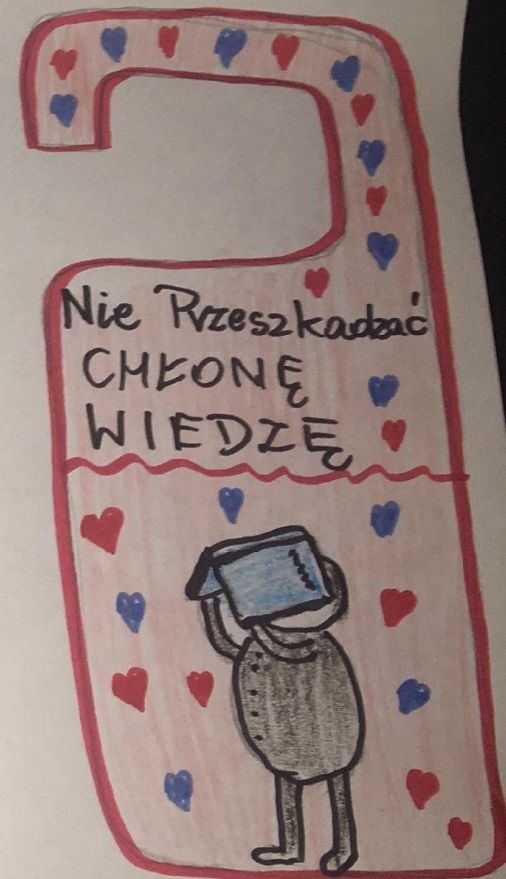 Nie Przeszkadzać
CHŁONĘ
WIEDZĘ